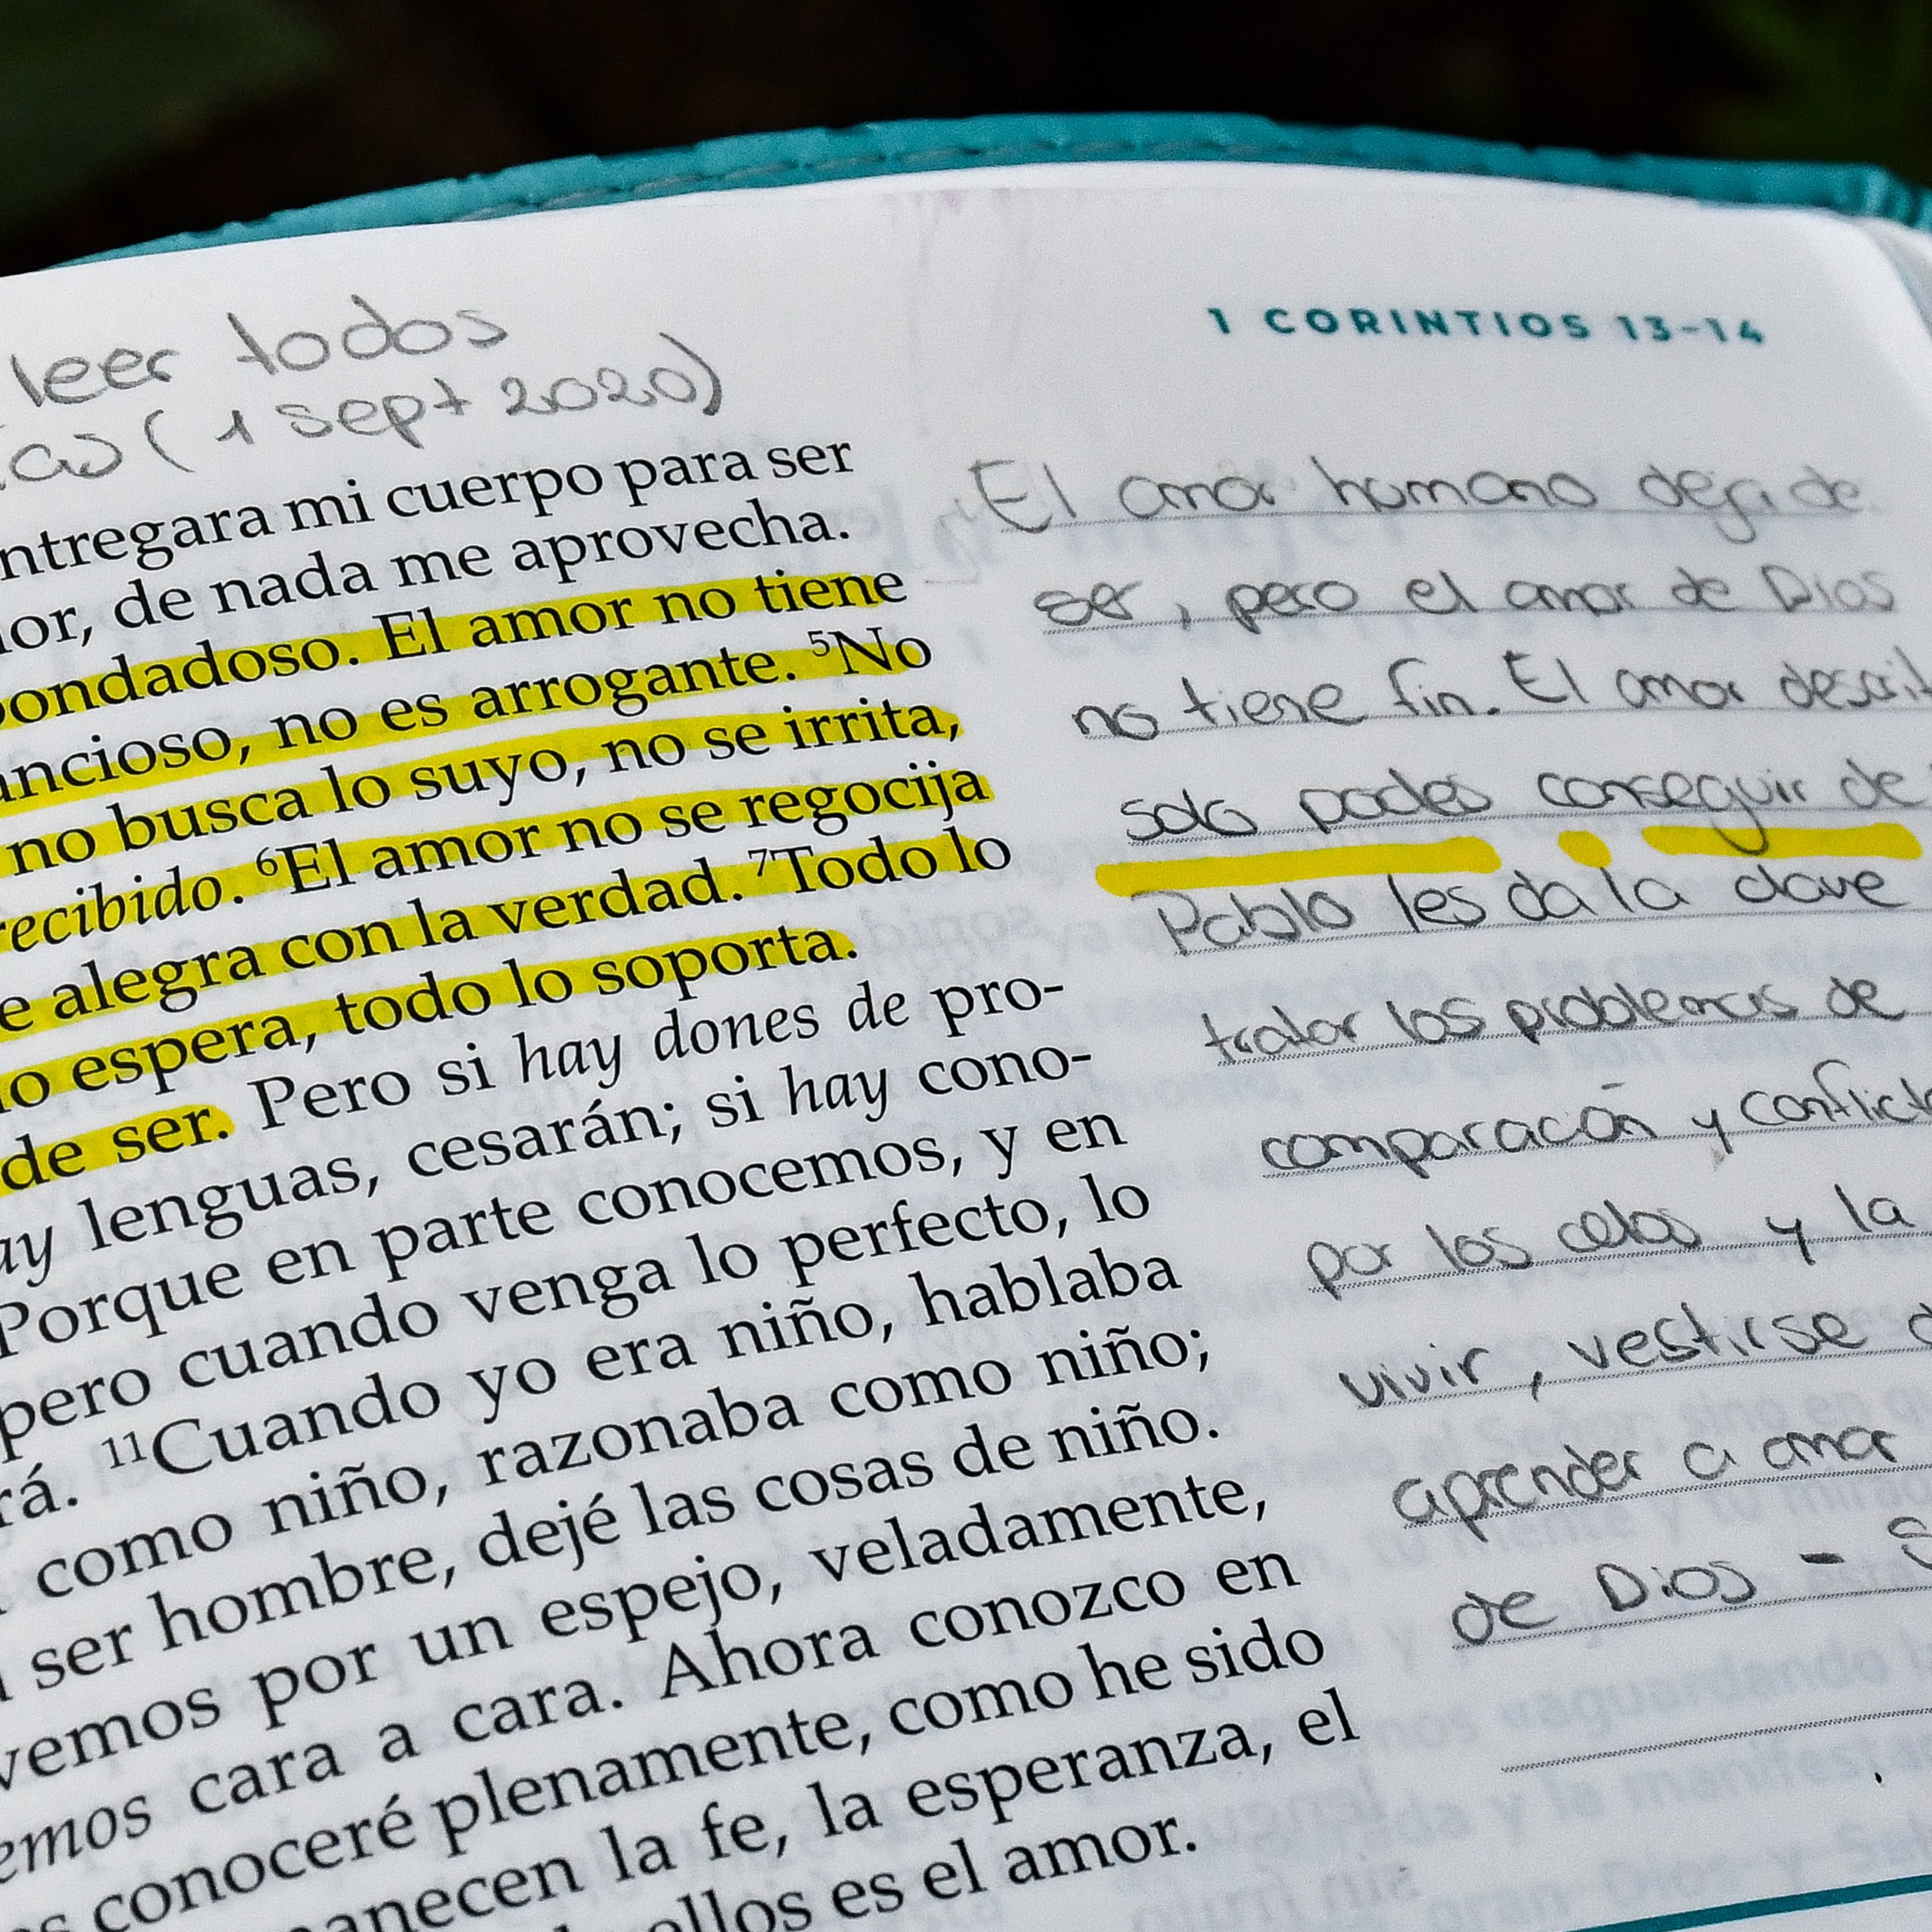 1 CORINTIOS 13-14
leer todos
(1 sept 2020)
ntregara mi cuerpo para ser
or, de nada me aprovecha.
ondadoso. El amor no tiene
ncioso, no es arrogante. ⁵No
no busca lo suyo, no se irrita,
recibido. ⁶El amor no se regocija
e alegra con la verdad. ⁷Todo lo
lo espera, todo lo soporta.
de ser. Pero si hay dones de pro-
ay lenguas, cesarán; si hay cono-
Porque en parte conocemos, y en
pero cuando venga lo perfecto, lo
rá. ¹¹Cuando yo era niño, hablaba
como niño, razonaba como niño;
ser hombre, dejé las cosas de niño.
vemos por un espejo, veladamente,
emos cara a cara. Ahora conozco en
conoceré plenamente, como he sido
anecen la fe, la esperanza, el
ellos es el amor.
El amor humano deja de
ser, pero el amor de Dios
no tiene fin. El amor describ
solo podes conseguir de
Pablo les da la clave
tratar los problemas de
comparación y conflicto
por los celos y la
vivir, vestirse
aprender a amar
de Dios -